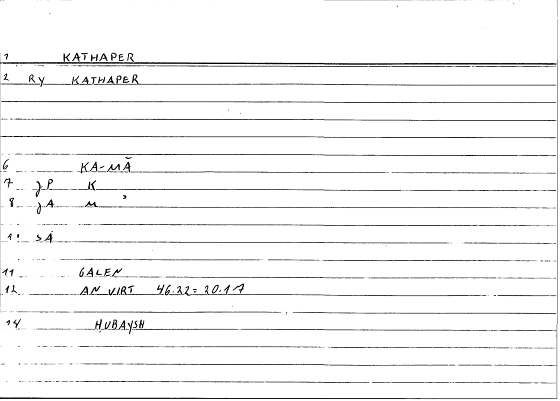 1 KATHAPER
2 Ry KATHAPER
6 KA-MĀ
7 JP K
8 JA M ɔ
1· SA
11 GALEN
12 AN VIRT 46.22=20.17
14 ḤUBAYSH